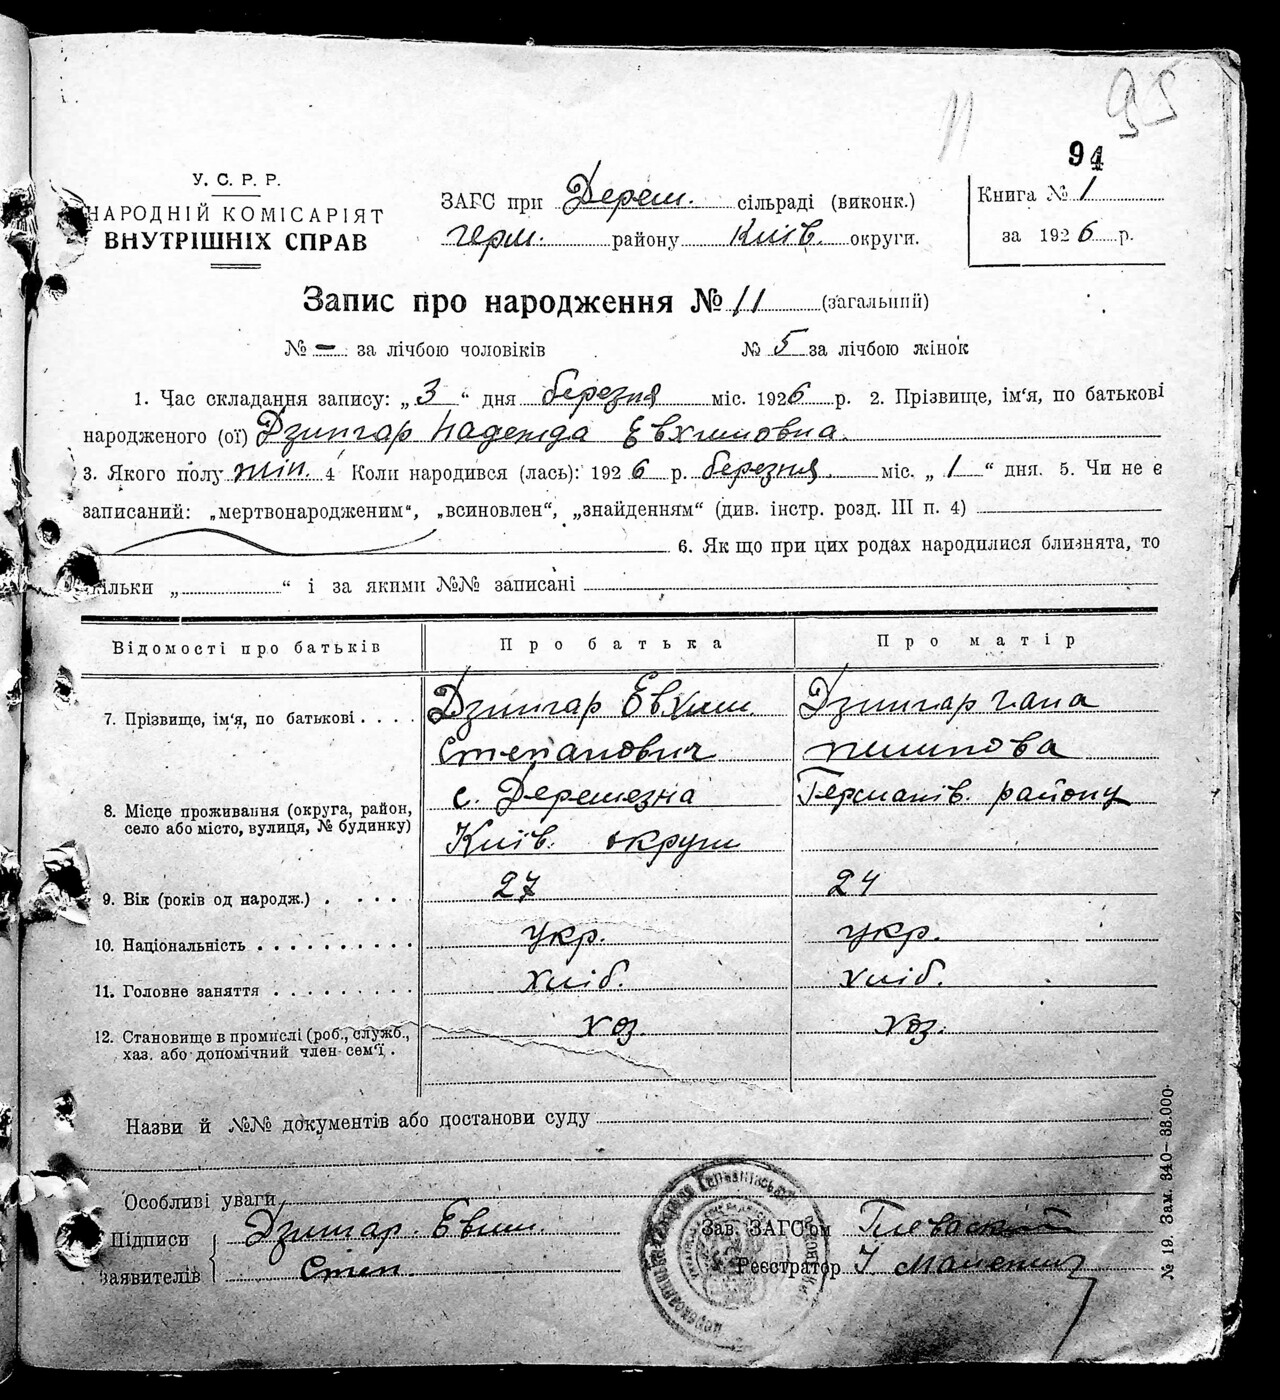 95
11
94
У. С. Р. Р.
НАРОДНІЙ КОМІСАРІЯТ
ВНУТРІШНІХ СПРАВ
ЗАГС при Дереш. сільраді (виконк.)
герм. району Київ. округи.
Книга № 1
за 1926 р.
Запис про народження № 11 (загальний)
№ – за лічбою чоловіків № 5 за лічбою жінок
1. Час складання запису: „3“ дня березня міс. 1926 р. 2. Прізвище, ім'я, по батькові
народженого (ої) Дзингар Надежда Евхимовна.
3. Якого полу жін. 4 Коли народився (лась): 1926 р. березня міс. „1“ дня. 5. Чи не є
записаний: „мертвонародженим“, „всиновлен“, „знайденням“ (див. інстр. розд. III п. 4)
6. Як що при цих родах народилися близнята, то
кільки „ “ і за якими №№ записані
Відомості про батьків Про батька Про матір
7. Прізвище, ім'я, по батькові . . . . Дзингар Евхим. Дзингар гана
Степанович пилипова
8. Місце проживання (округа, район, село або місто, вулиця, № будинку) с. Деремезна Германів. району
Київ. округи
9. Вік (років од народж.) . . . . . 27 24
10. Національність . . . . . . . . . . укр. укр.
11. Головне заняття . . . . . . . . . хліб. хліб.
12. Становище в промислі (роб., служб., хаз. або допомічний член сем'ї . хоз. хоз.
Назви й №№ документів або постанови суду
Особливі уваги
Підписи Дзингар Евхим. Зав. ЗАГС'ом
заявителів Степ. Реєстратор
№ 19. Зам. 340—33.000.